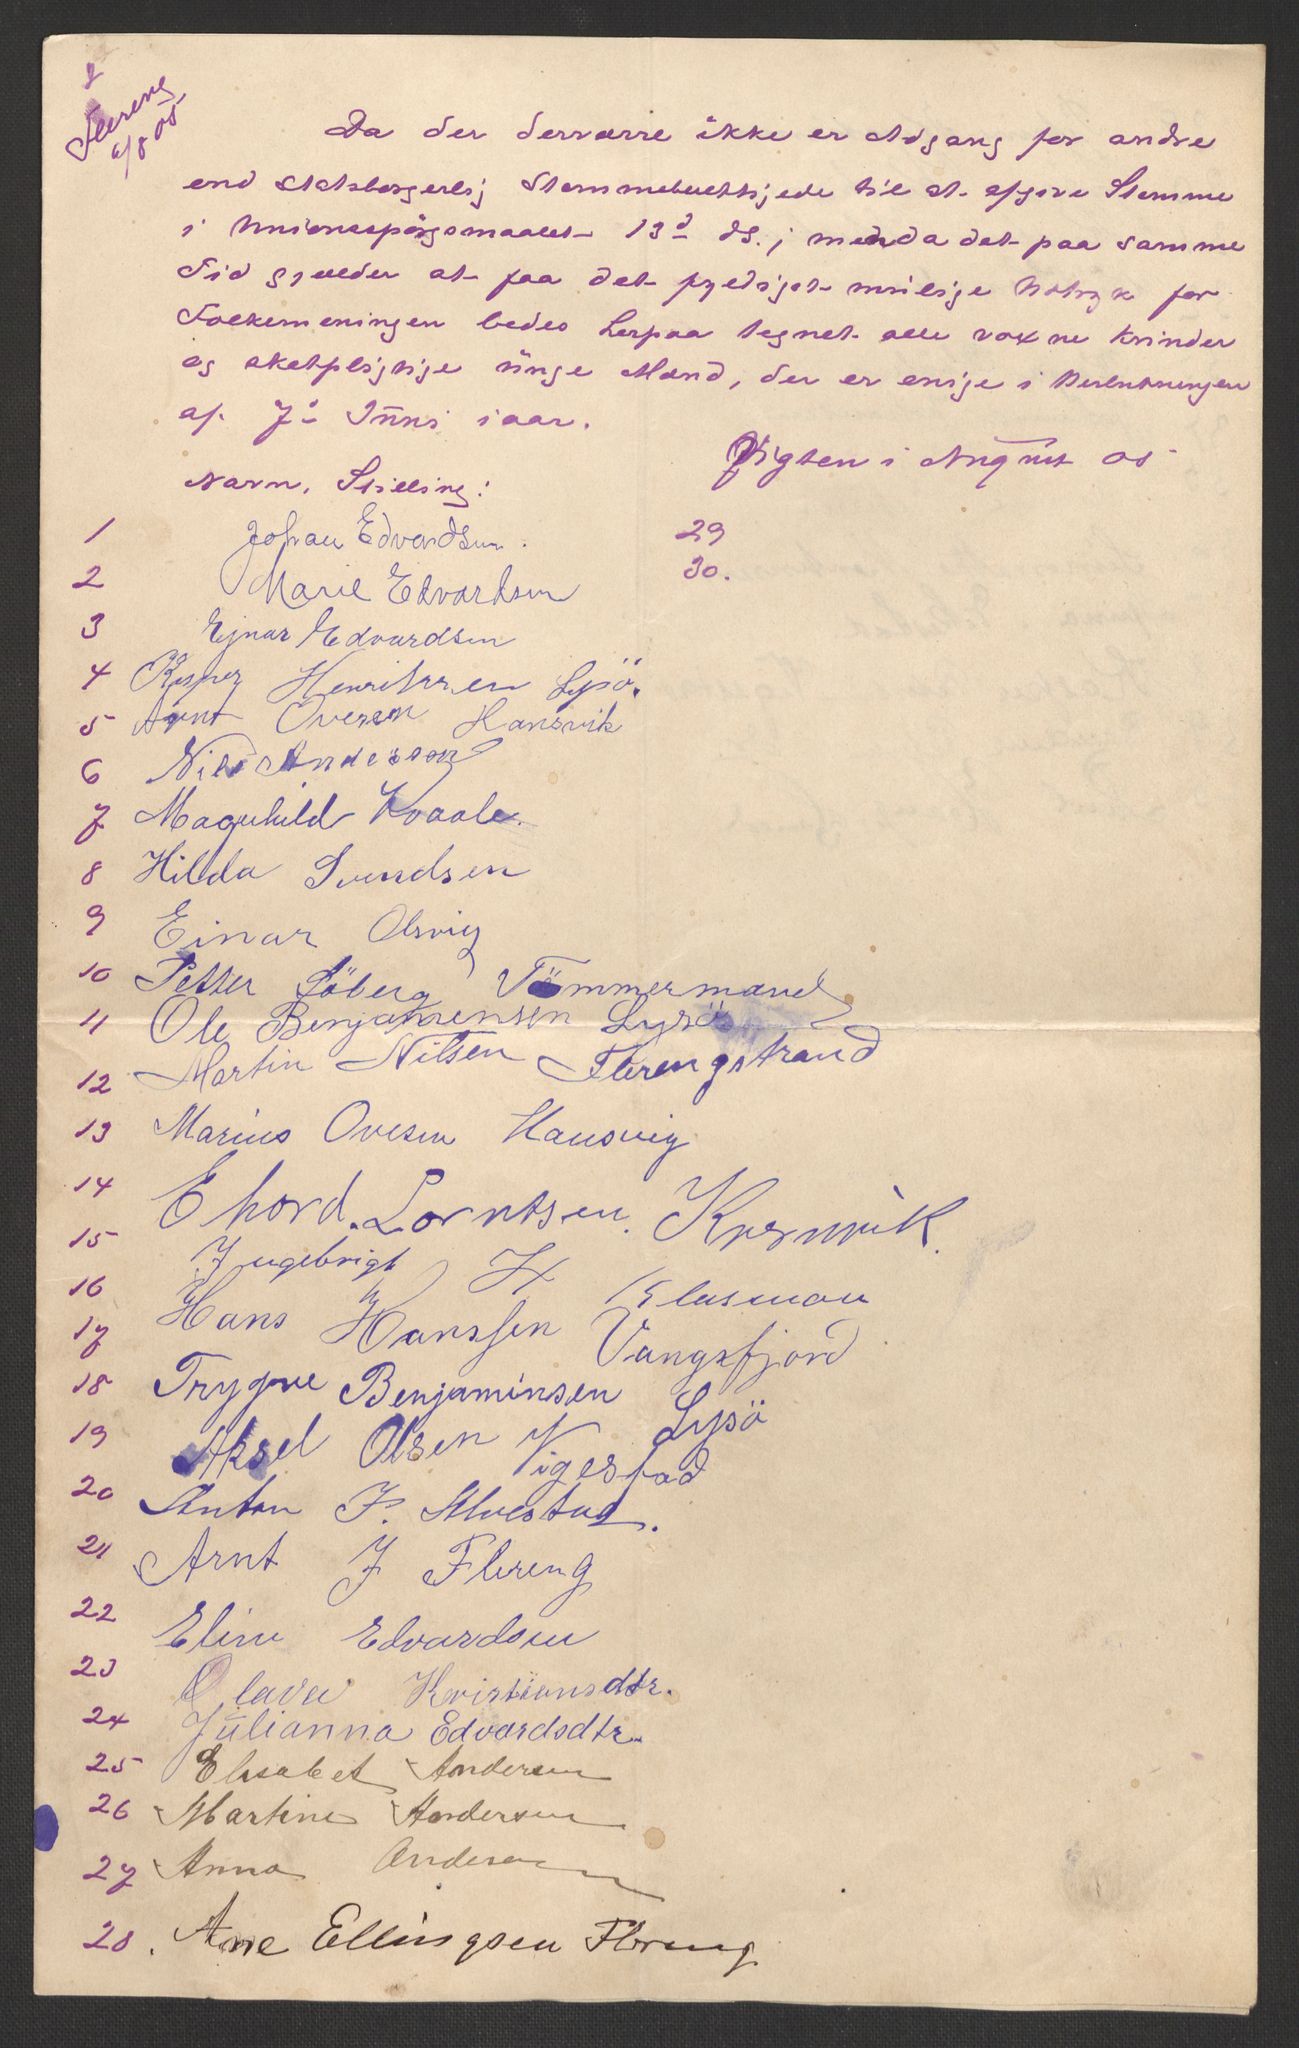 Flereng
6/8 05
Da der derværre ikke er Adgang for andre
end statsborgerlig Stemmeberettigede til at afgive Stemme
i Unionsspörgsmaalet 13d ds.; men da det paa samme
Tid gjælder at faa det fyldigst mulige Udtryk for
Folkemeningen bedes herpaa tegnet alle voxne Kvinder
og skatpligtige unge Mænd, der er enige i Beslutningen
af 7d Juni iaar.
Vigten i August 05
Navn, Stilling:
1 Johan Edvardsen.
2 Marie Edvartsen
3 Ejnar Edvardsen
4 Henriksen Lysö.
5 Arnt Ovesen Hansvik
6 Nils Anderson
7 Magnhild Kvaale.
8 Hilda Svendsen
9 Einar Olsvig
10 Petter Söberg Tömmermand
11 Ole Benjamensen Lysö
12 Martin Nilsen Flerengstrand
13 Marius Ovesen Hansvig
14 Ehord. Lorntsen.
15 Ingebrigt H
16 Hans Hanssen Vangsfjord
17
18 Trygve Benjaminsen Lysö
19 Aksel Olsen Vigestad
20 Anton J. Alvestad.
21 Arnt J Flereng
22 Eline Edvardsen
23 Olava Kristiansdtr.
24 Julianna Edvardsdtr.
25 Elisabet Andersen
26 Martine Andersen
27 Anna Andersen
28. Ane Ellingsen Flereng
29
30.